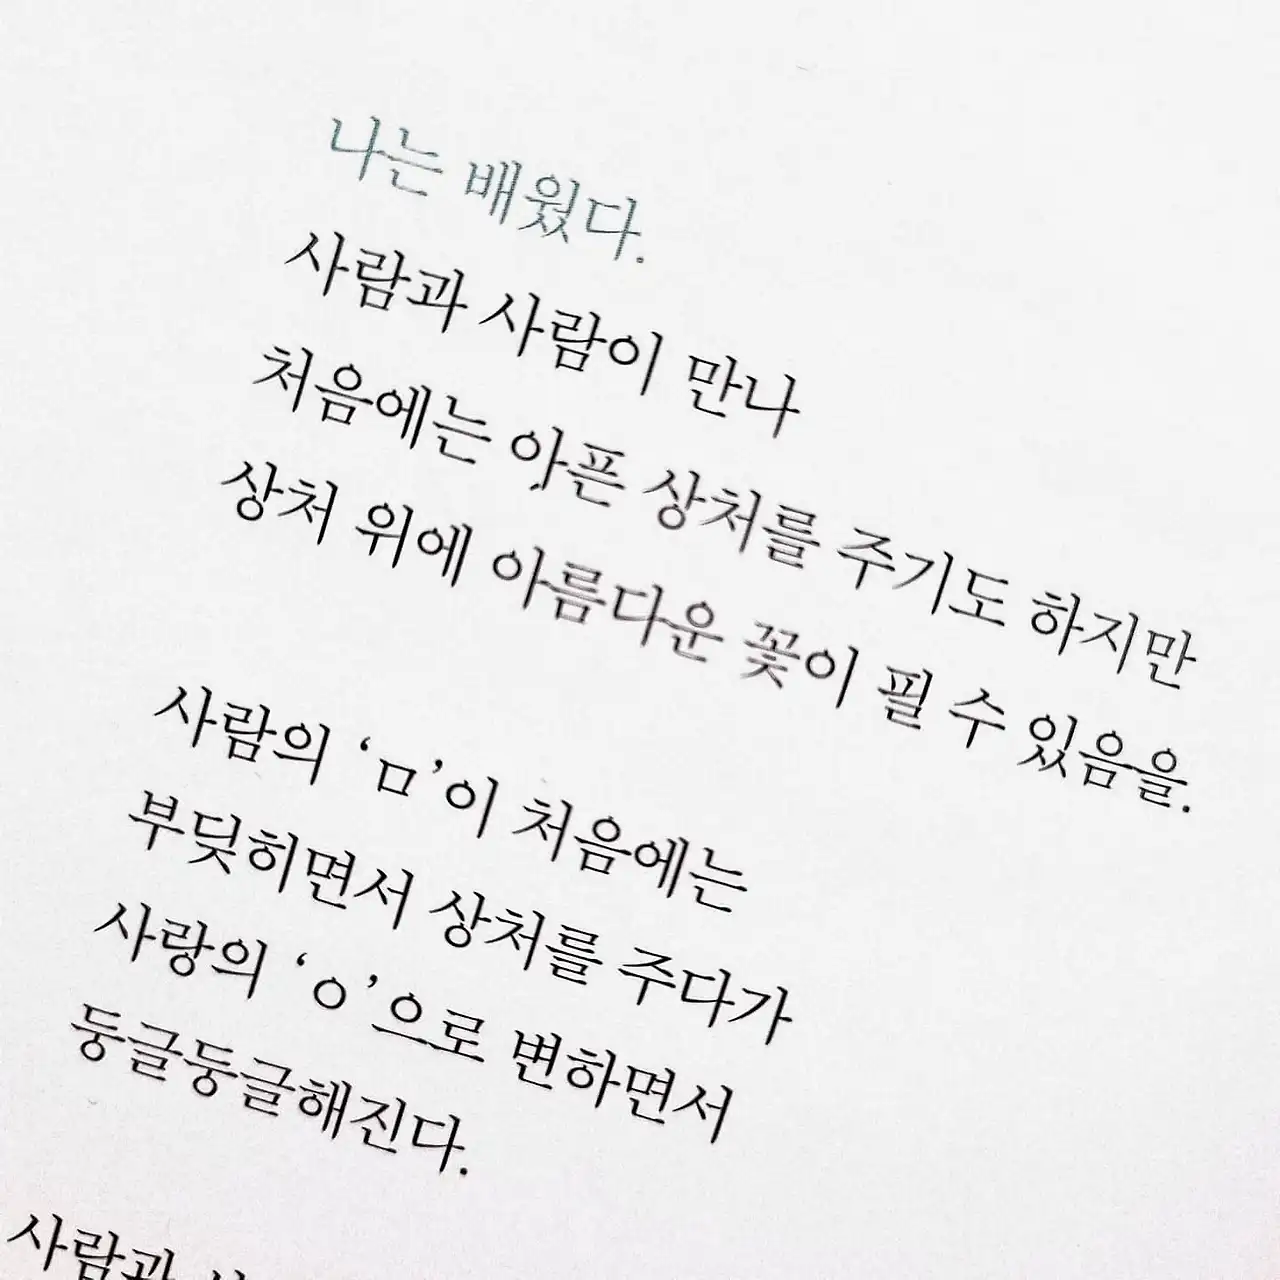 나는 배웠다.
사람과 사람이 만나
처음에는 아픈 상처를 주기도 하지만
상처 위에 아름다운 꽃이 필 수 있음을.
사람의 ‘ㅁ’이 처음에는
부딪히면서 상처를 주다가
사랑의 ‘ㅇ’으로 변하면서
둥글둥글해진다.
사람과